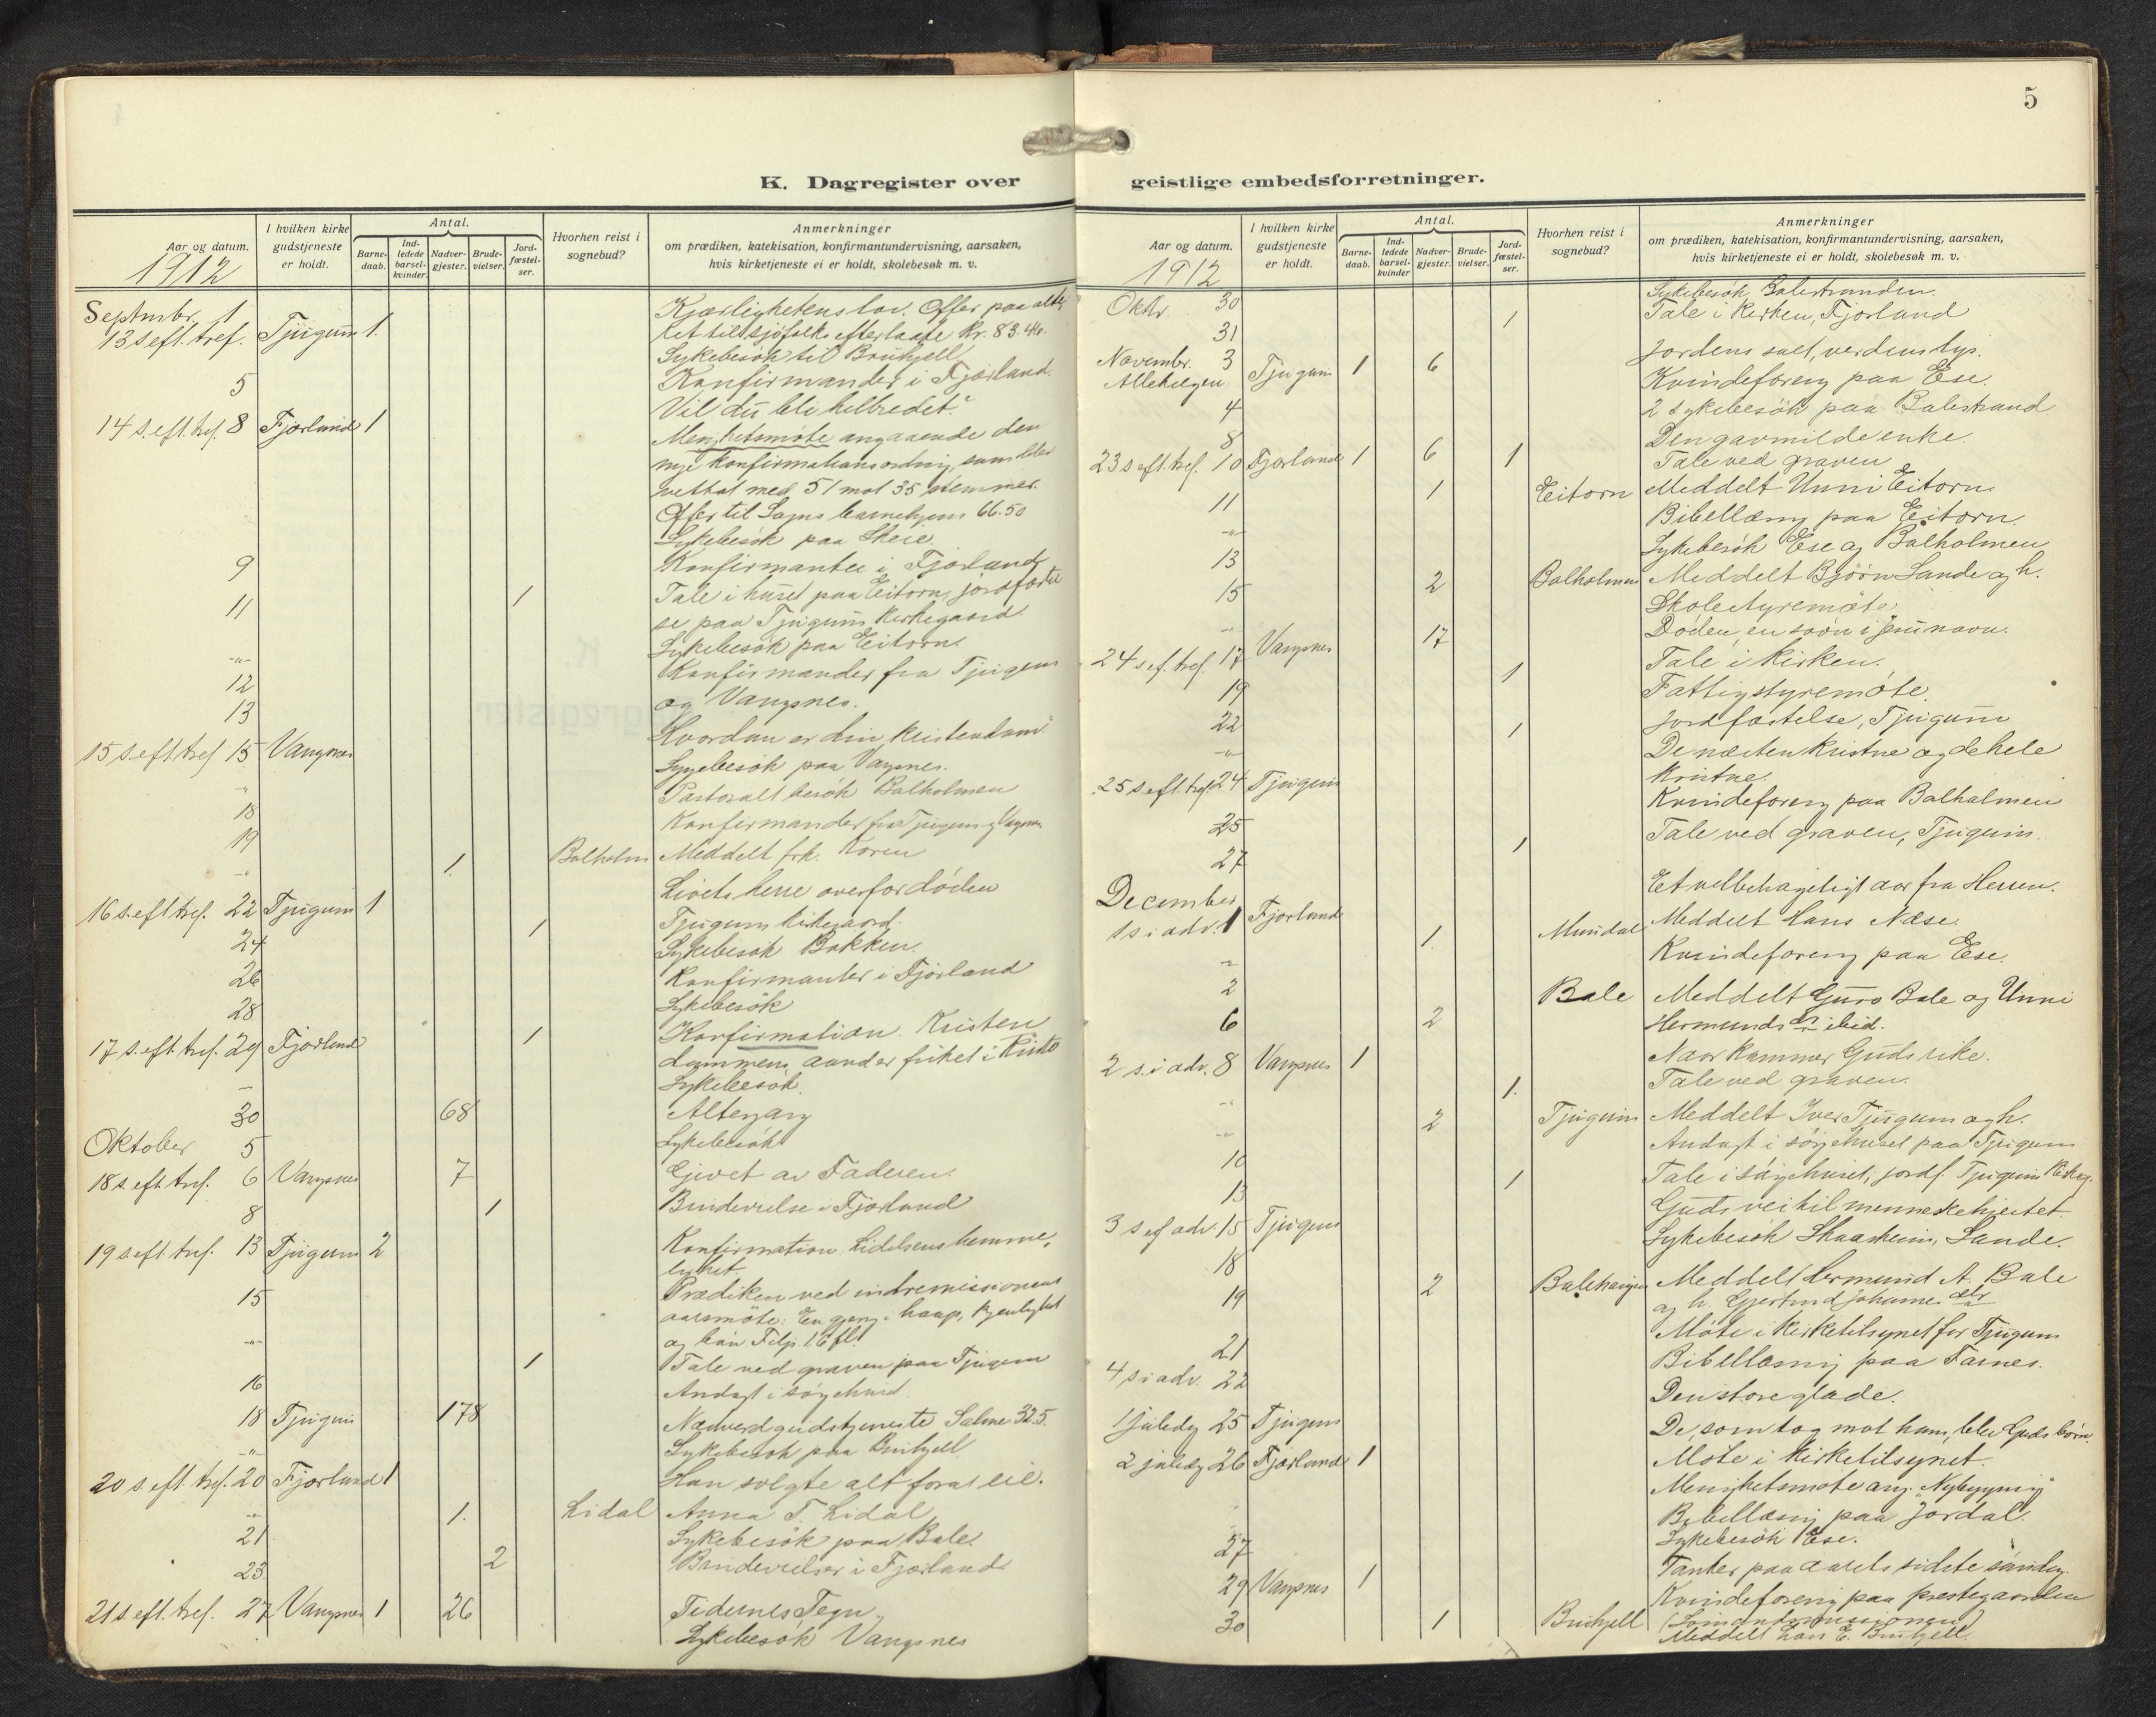 5
K. Dagregister over geistlige embedsforretninger.
Aar og datum. I hvilken kirke gudstjeneste er holdt. Antal. Barne-daab. Ind-ledede barsel-kvinder. Nadver-gjester. Brude-vielser. Jord-fæstel-ser. Hvorhen reist i sognebud? Anmerkninger om prædiken, katekisation, konfirmantundervisning, aarsaken, hvis kirketjeneste ei er holdt, skolebesøk m. v.
1912
Septmbr. 1 Kjærlighetens lov. Offer paa alte,
13 s eft. tref. Tjugum 1. ret til sjøfolks efterlatte kr. 83.46.
Sykebesök til Brühjell
5 Konfirmander i Fjærland.
14 s. eft. tref. 8 Fjærland 1 Vil du bli helbredet?
Menighetsmøte angaaende den
nye konfirmationsordning, som blev
vedtat med 51 mot 35 stemmer.
Offer til Sogns barnehjem 66.50
Sykebesök paa Skeie.
9 Konfirmanter i Fjærland
11 1 Tale i huset paa Eitorn, jordfæstel
se paa Tjugum kirkegaard.
-"- Sykebesök paa Eitorn.
12 Konfirmander fra Tjugum
13 og Vangsnes.
15 s. eft. tref 15 Vangsnes Hvordan er din kristendom?
Sygebesok paa Vangsnes.
18 Pastoralt besök Balholmen
19 Konfirmander fra Tjugum og Vangsnes
-"- 1. Balholm Meddelt frk. Koren
16 s. eft tref. 22 Tjugum 1 Livets herre overfor döden
24 1 Tjugum kirkegaard.
26 Sykebesök Bakken.
28 Konfirmanter i Fjærland
Sykebesök
17 s. eft. tref. 29 Fjærland 1 Konfirmation. Kristen
dommens aand er frihet i Kristo
- Sykebesök.
30 68 Altergang
Oktober 5 Sykebesök
18 s. eft. tref. 6 Vangsnes 7 Givet av Faderen.
8 1 Brudevielse i Fjærland
19 s eft. tref. 13 Tjugum 2 Konfirmation. Lidelsens hemme,
lighet.
15 Prædiken ved indremissionens
aarsmöte: En gjeng i haap, kjærlighet
-"- og bön Filip. 1.6 fl.
1 Tale ved graven paa Tjugum
16 Andagt i sörgehus.
18 Tjugum 178 Nadverdgudstjeneste Salme 325.
-"- Sykebesok paa Bruhjell
20 s. eft. tref. 20 Fjærland 1 Han solgte alt foran eie.
-"- 1. Lidal Anna T. Lidal
21 Sykebesök paa Bale.
23 2 Brudevielser i Fjærland.
21 s. eft. tref. 27 Vangsnes 1 26 Tidernes Tegn.
Sykebesök Vangsnes
Aar og datum. I hvilken kirke gudstjeneste er holdt. Antal. Barne-daab. Ind-ledede barsel-kvinder Nadver-gjester. Brude-vielser. Jord-fæstel-ser. Hvorhen reist i sognebud? Anmerkninger om prædiken, katekisation, konfirmantundervisning, aarsaken, hvis kirketjeneste ei er holdt, skolebesøk m. v.
1912
Oktbr. 30 Sykebesök Balestranden.
31 1 Tale i kirken, Fjærland
Novembr. 3 Tjugum 1 6 Jordens salt, verdens lys.
Allehelgen.
4 Kvindeforeng paa Ese.
8 2 sykebesök paa Balestrand.
23 s eft. tref. 10 Fjærland 1 6 1 Den gavmilde enke.
Tale ved graven
11 1 Eitorn Meddelt Unni Eitorn.
-"- Bibellæsng paa Eitorn.
13 Sykebesök Ese og Balholmen
15 2 Balholmen Meddelt Björn Lande og h.
-"- Skolestyremöte.
24 s ef. tref. 17 Vangsnes 17 Döden, en sövn i Jesu navn.
19 1 Tale i kirken.
22 Fattigstyremöte.
-"- 1 Jordfæstelse, Tjugum
25 s. eft. tref. 24 Tjugum De næsten kristne og de hele
kristne.
25 Kvindeforeng paa Balholmen
27 1 Tale ved graven, Tjugum.
December
1 s i adv. 1 Fjærland Et velbehageligt aar fra Herren.
-"- 1. Mundal Meddelt Hans Næse.
2 Kvindeforeng paa Ese.
6 2 Bale Meddelt Guro Bale og Unni
Hermundsdr ibid.
2 s. i adv. 8 Vangsnes 1 Naar kommer Guds rike.
-"- 1. Tale ved graven.
-"- 2 Tjugum Meddelt Iver Tjugum og h.
10 Andagt i sörgehuset paa Tjugum
13 1 Tale i sörgehuset, jordf. Tjugum kirkeg.
3 s ef adv. 15 Tjugum Guds vei til menneskehjertet.
18 Sykebesök Skaasheim, Lande.
19 2 Balehaugen Meddelt Hermund A. Bale
og h. Gjertrud Johannesdtr
21 Möte i kirketilsynet for Tjugum
4 s i adv. 22 Bibellæsnig paa Farnes.
Den store glæde.
1 juledg 25 Tjugum De, som tog mot ham, blev Guds börn.
2 juledg 26 Fjærland 1 Möte i kirketilsynet.
Menighetsmøte ang. Nybygning
-"- Bibellæsng paa Jordal.
27 Sykebesök Ese.
29 Vangsnes 1 Tanker paa aarets sidste söndag.
30 Kvindeforeng paa prestegaarden
(Sömandsmissionen)
1 Bruhjell Meddelt Lars E. Bruhjell.